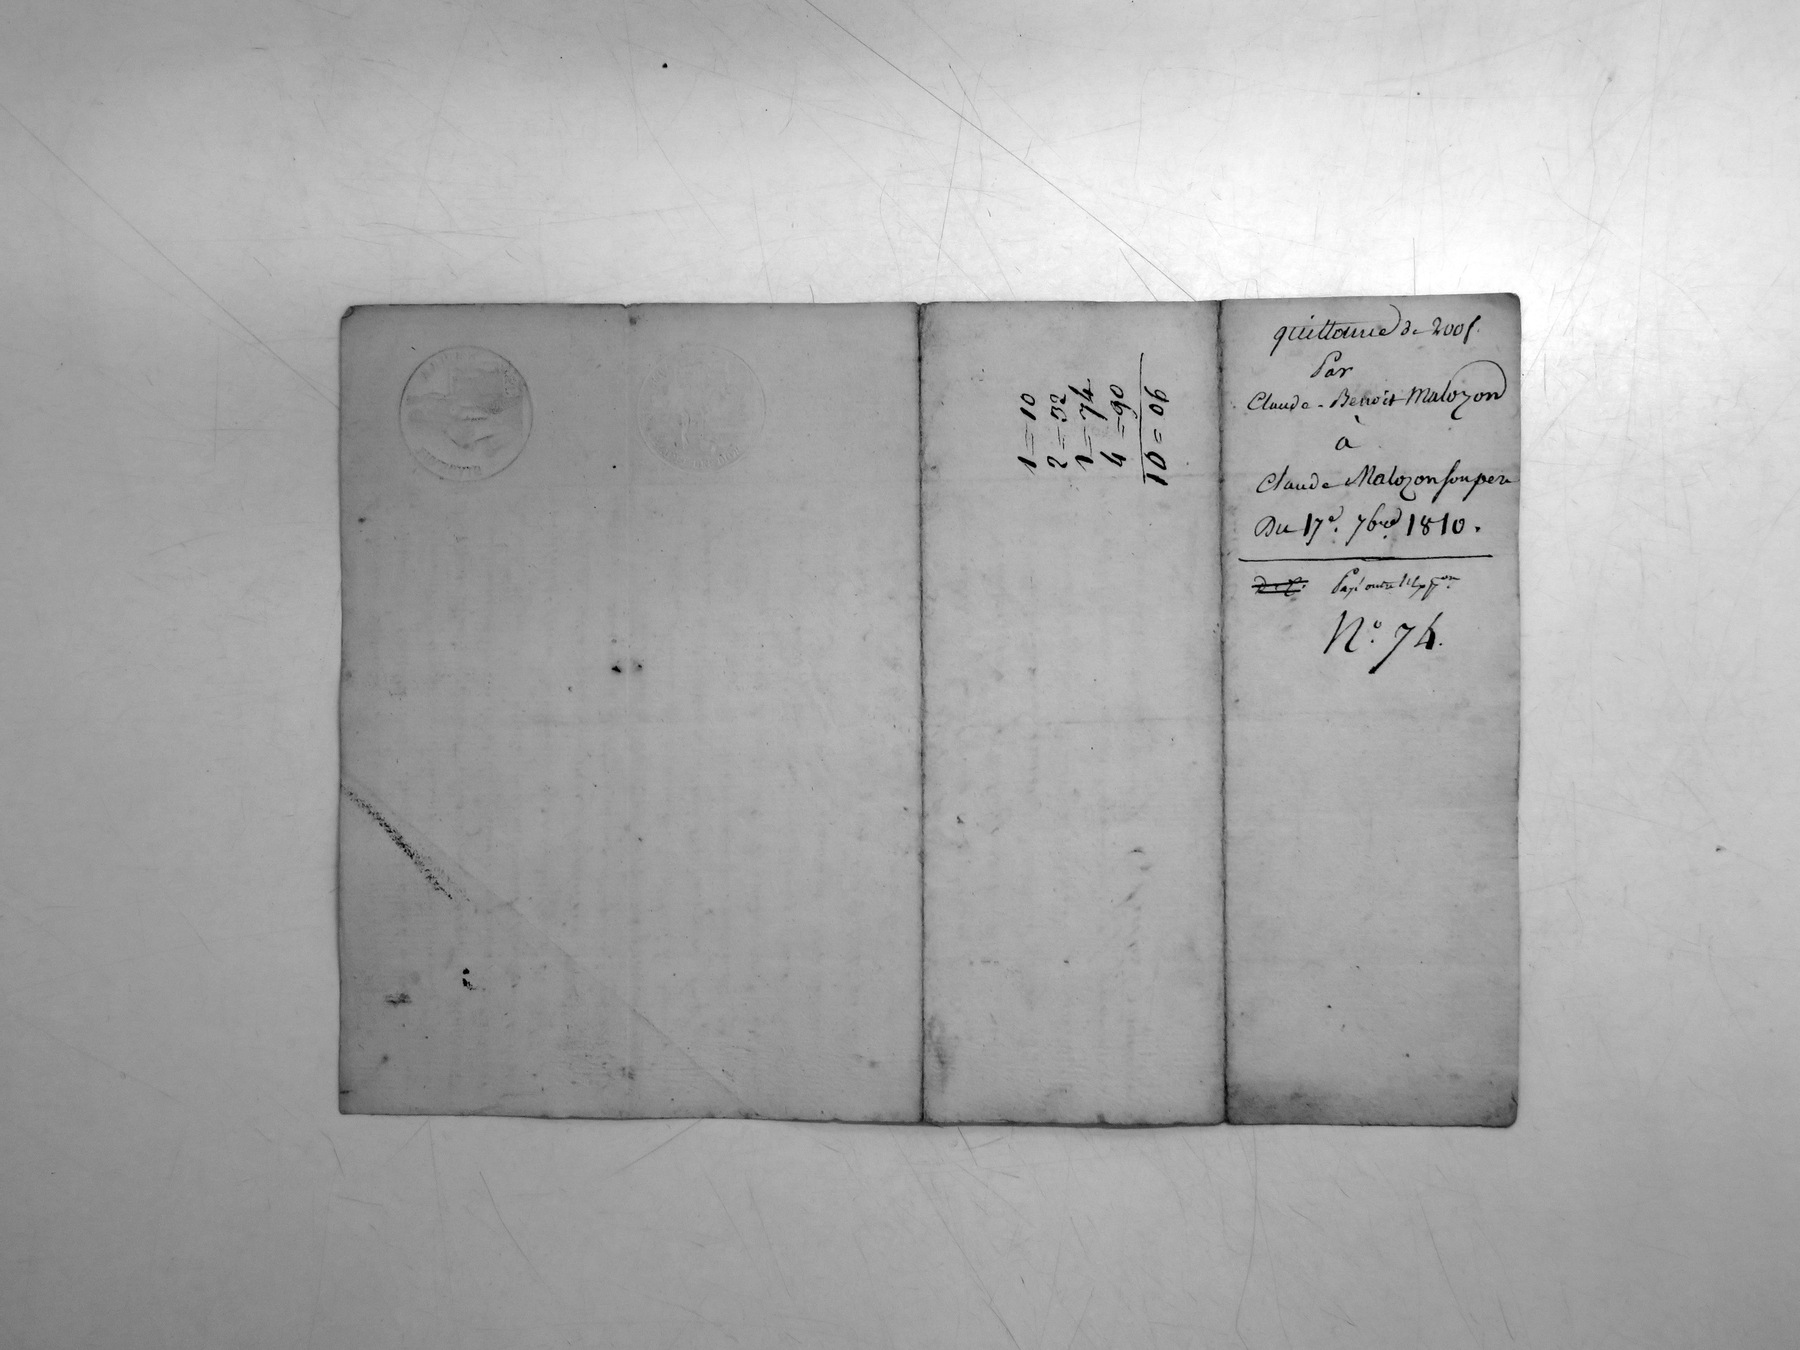 quittance de 200 f.
Par
Claude-Benoit Malozon
à
Claude Malozon son pere
Du 17e. 7bre. 1810.
Payé outre
N°. 74.
1=10
2=32
1=74
4=90
10=06